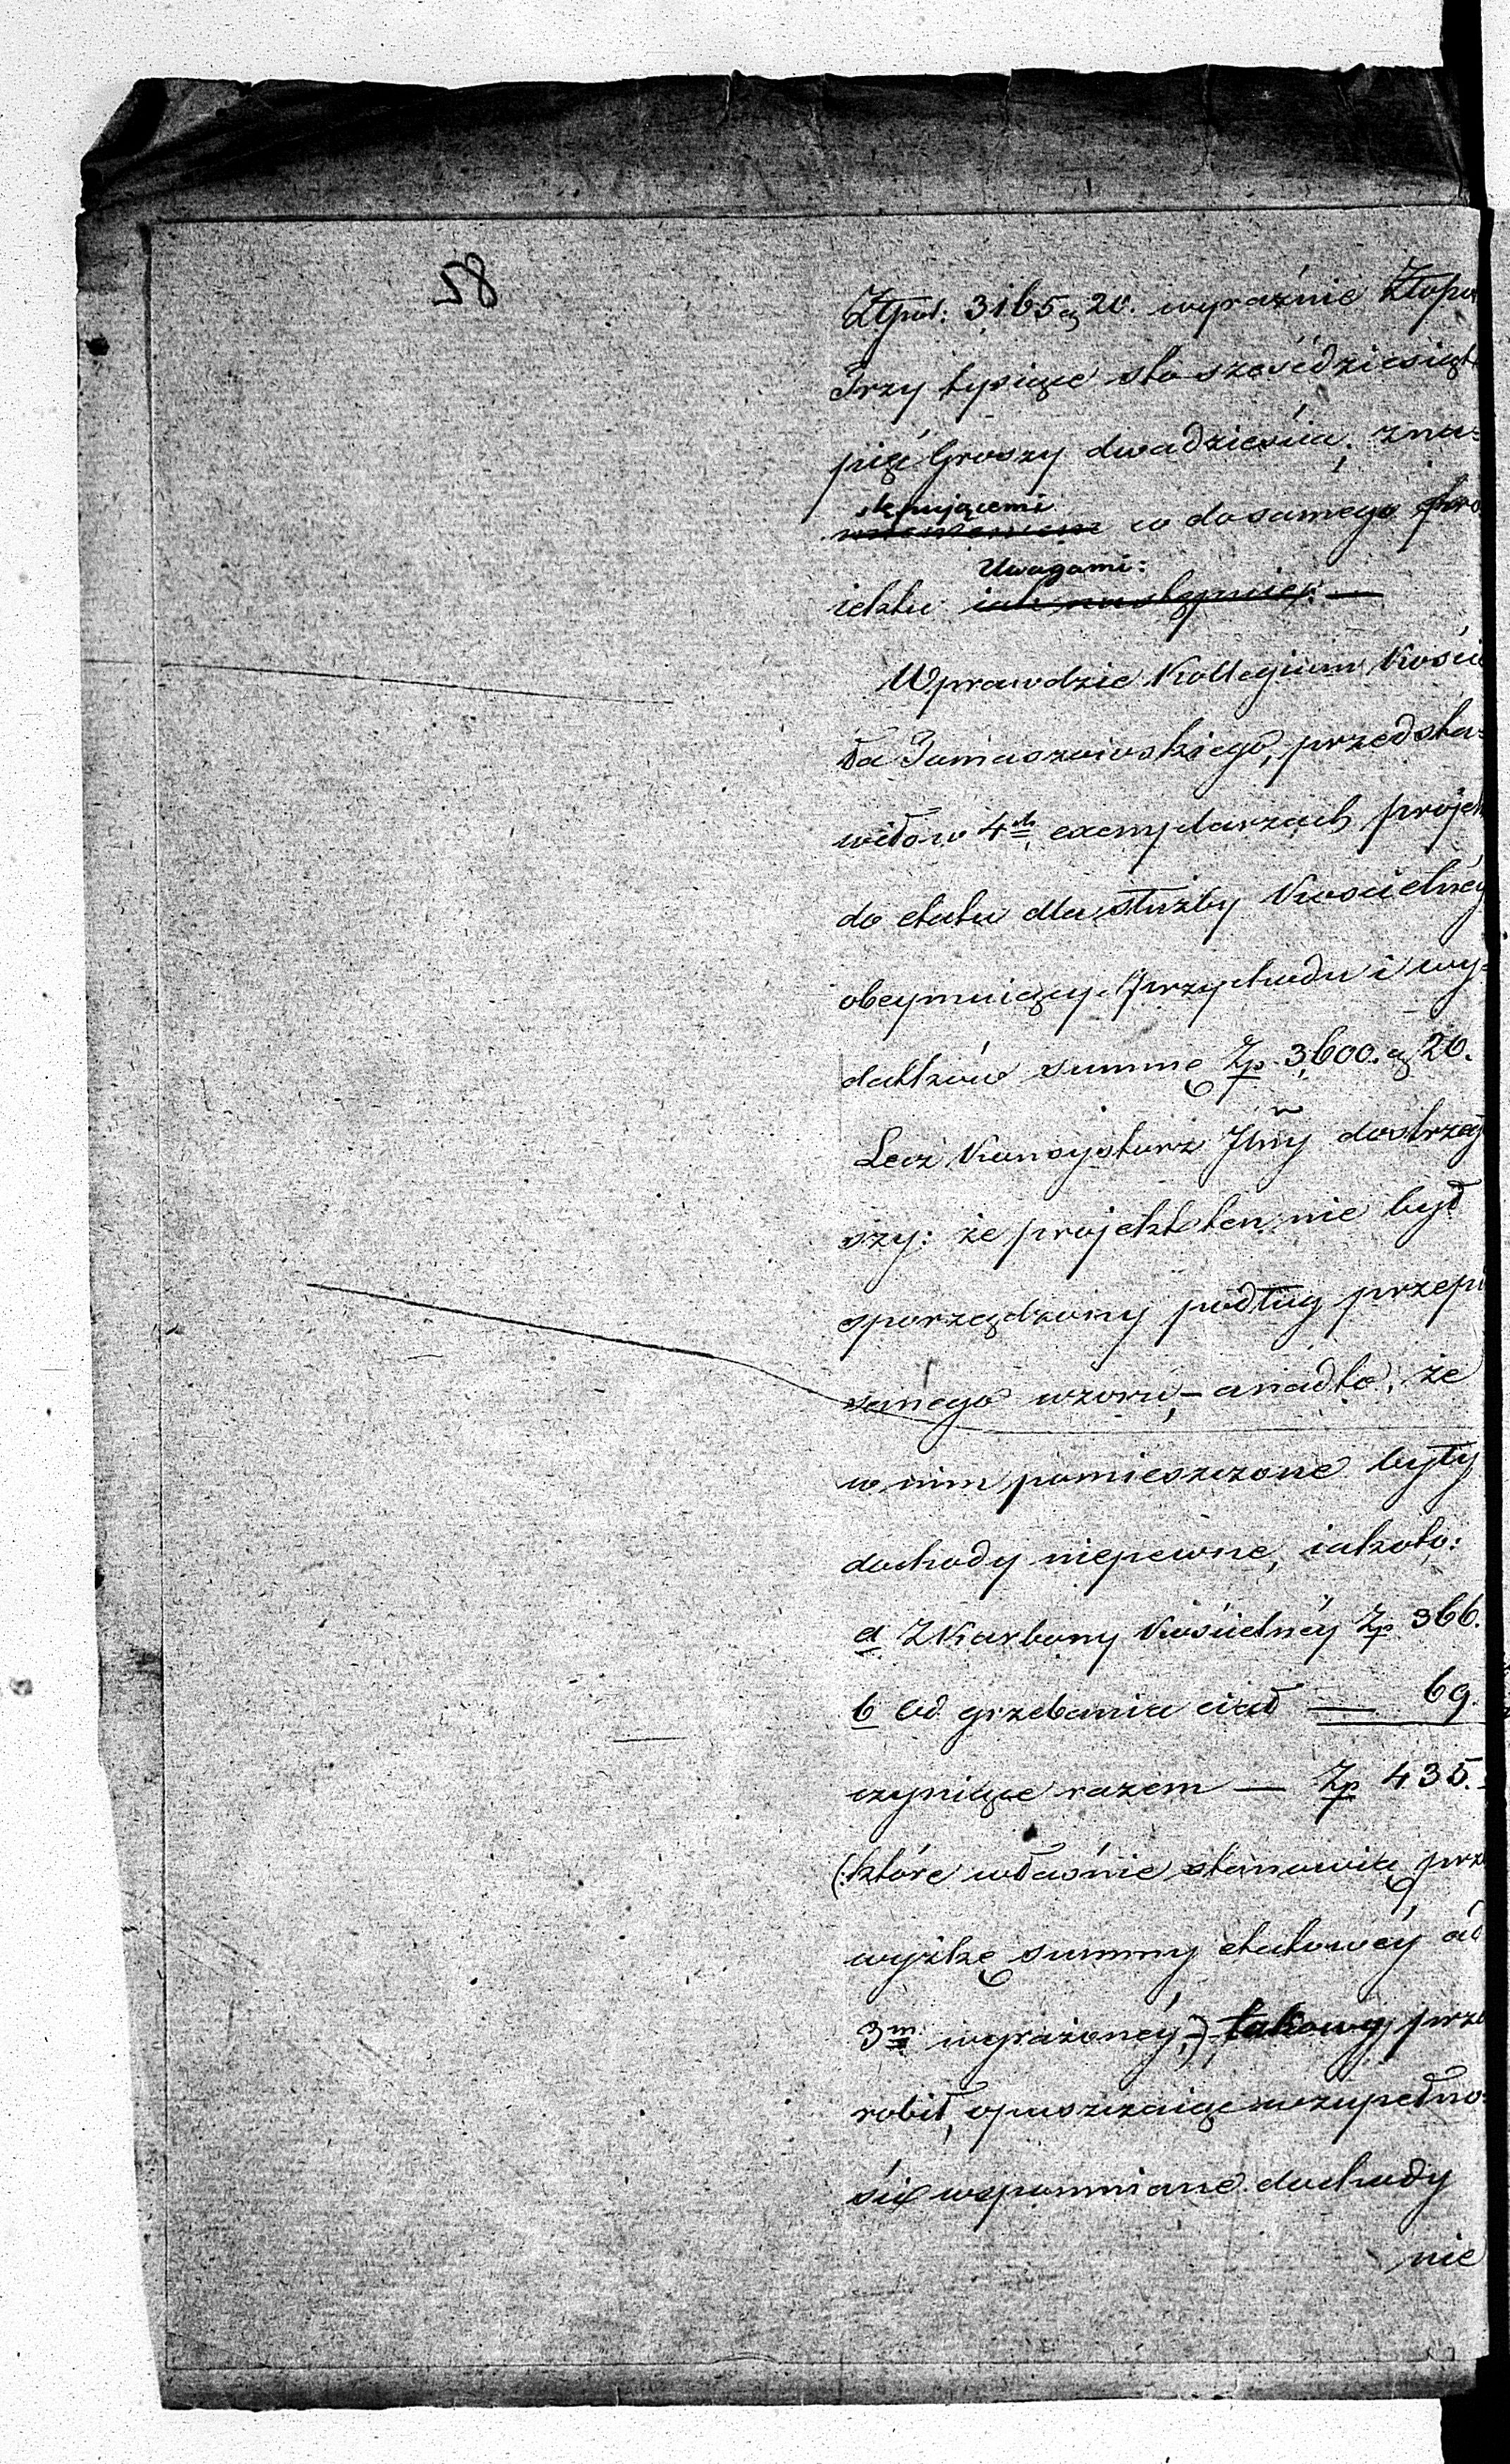 82
Złpol: 3165 g 20. wyraźnie Złopo
Trzy tysiące sto sześćdziesiąt
pięć Groszy dwadzieścia; z na=
stępującemi
w do samego pro
Uwagami:
iektu iak następuie: —
Wprawdzie Kollegium Kości
ła Tomaszowskiego, przedsta=
wiło w 4ch exemplarzach projek
do etatu dla służby Kościelnéy
obeymuiący Przychodu i wy=
datków summę Zp 3,600. g 20.
Lecz Konsystorz Jlny dostrzeg
szy: że projekt ten nie był
sporządzony podług przepi
sanego wzoru, – a nadto, że
w nim pomieszczone były
dochody niepewne, iakoto:
a Z Karbony Kościelnéy Zp 366.
b od grzebania ciał — 69.
czyniące razem — Zp 435.
(:które właśnie stanowią prze
wyżkę summy etatowéy ad
3m wyrażonéy,:) – takowy prze
robił, opuszczaiąc w zupełno=
ści wspomniane dochody
nie